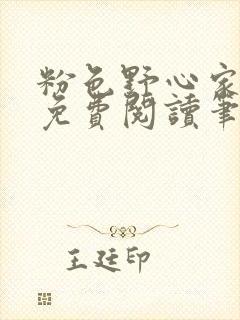 粉色野心家
免費閱讀筆
王廷印